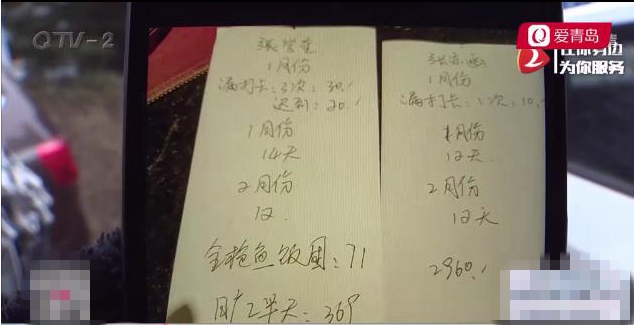 QTV-2
爱青岛
2
在你身边
为你服务
1月份
漏打卡:3次:30.
迟到:20.
1月份
14天
2月份
12.
金枪鱼饭团:71
1月份
漏打卡:1次:10.
1月份
12天
2月份
12天
2960.